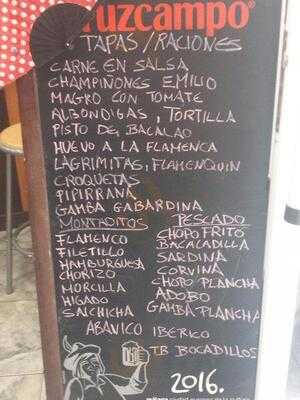 ruzcampo®
TAPAS/RACIONES
CARNE EN SALSA
CHAMPIÑONES EMILIO
MAGRO CON TOMATE
ALBONDIGAS, TORTILLA
PISTO DE BACALAO
HUEVO A LA FLAMENCA
LAGRIMITAS, FLAMENQUIN
CROQUETAS
PIPIRRANA
GAMBA GABARDINA
MONTADITOS
FLAMENCO
FILETILLO
HAMBURGUESA
CHORIZO
MORCILLA
HIGADO
SALCHICHA
PESCADO
CHOPO FRITO
BACALADILLA
SARDINA
CORVINA
CHOPO PLANCHA
ADOBO
GAMBA PLANCHA
ABANICO IBERICO
TB BOCADILLOS
2016.